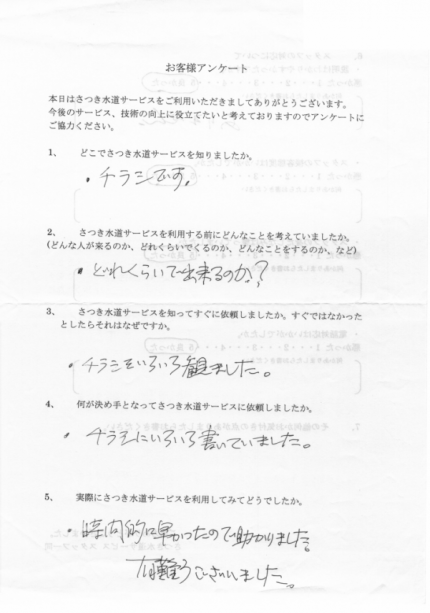 お客様アンケート
本日はさつき水道サービスをご利用いただきましてありがとうございます。
今後のサービス、技術の向上に役立てたいと考えておりますのでアンケートに
ご協力ください。
1、 どこでさつき水道サービスを知りましたか。
・チラシです。
2、 さつき水道サービスを利用する前にどんなことを考えていましたか。
(どんな人が来るのか、どれくらいでくるのか、どんなことをするのか、など)
・どれくらいで出来るのか??
3、 さつき水道サービスを知ってすぐに依頼しましたか。すぐではなかった
としたらそれはなぜですか。
・チラシをいろいろ観ました。
4、 何が決め手となってさつき水道サービスに依頼しましたか。
・チラシにいろいろ書いていました。
5、 実際にさつき水道サービスを利用してみてどうでしたか。
・時間的に早かったので助かりました。
有難うございました。